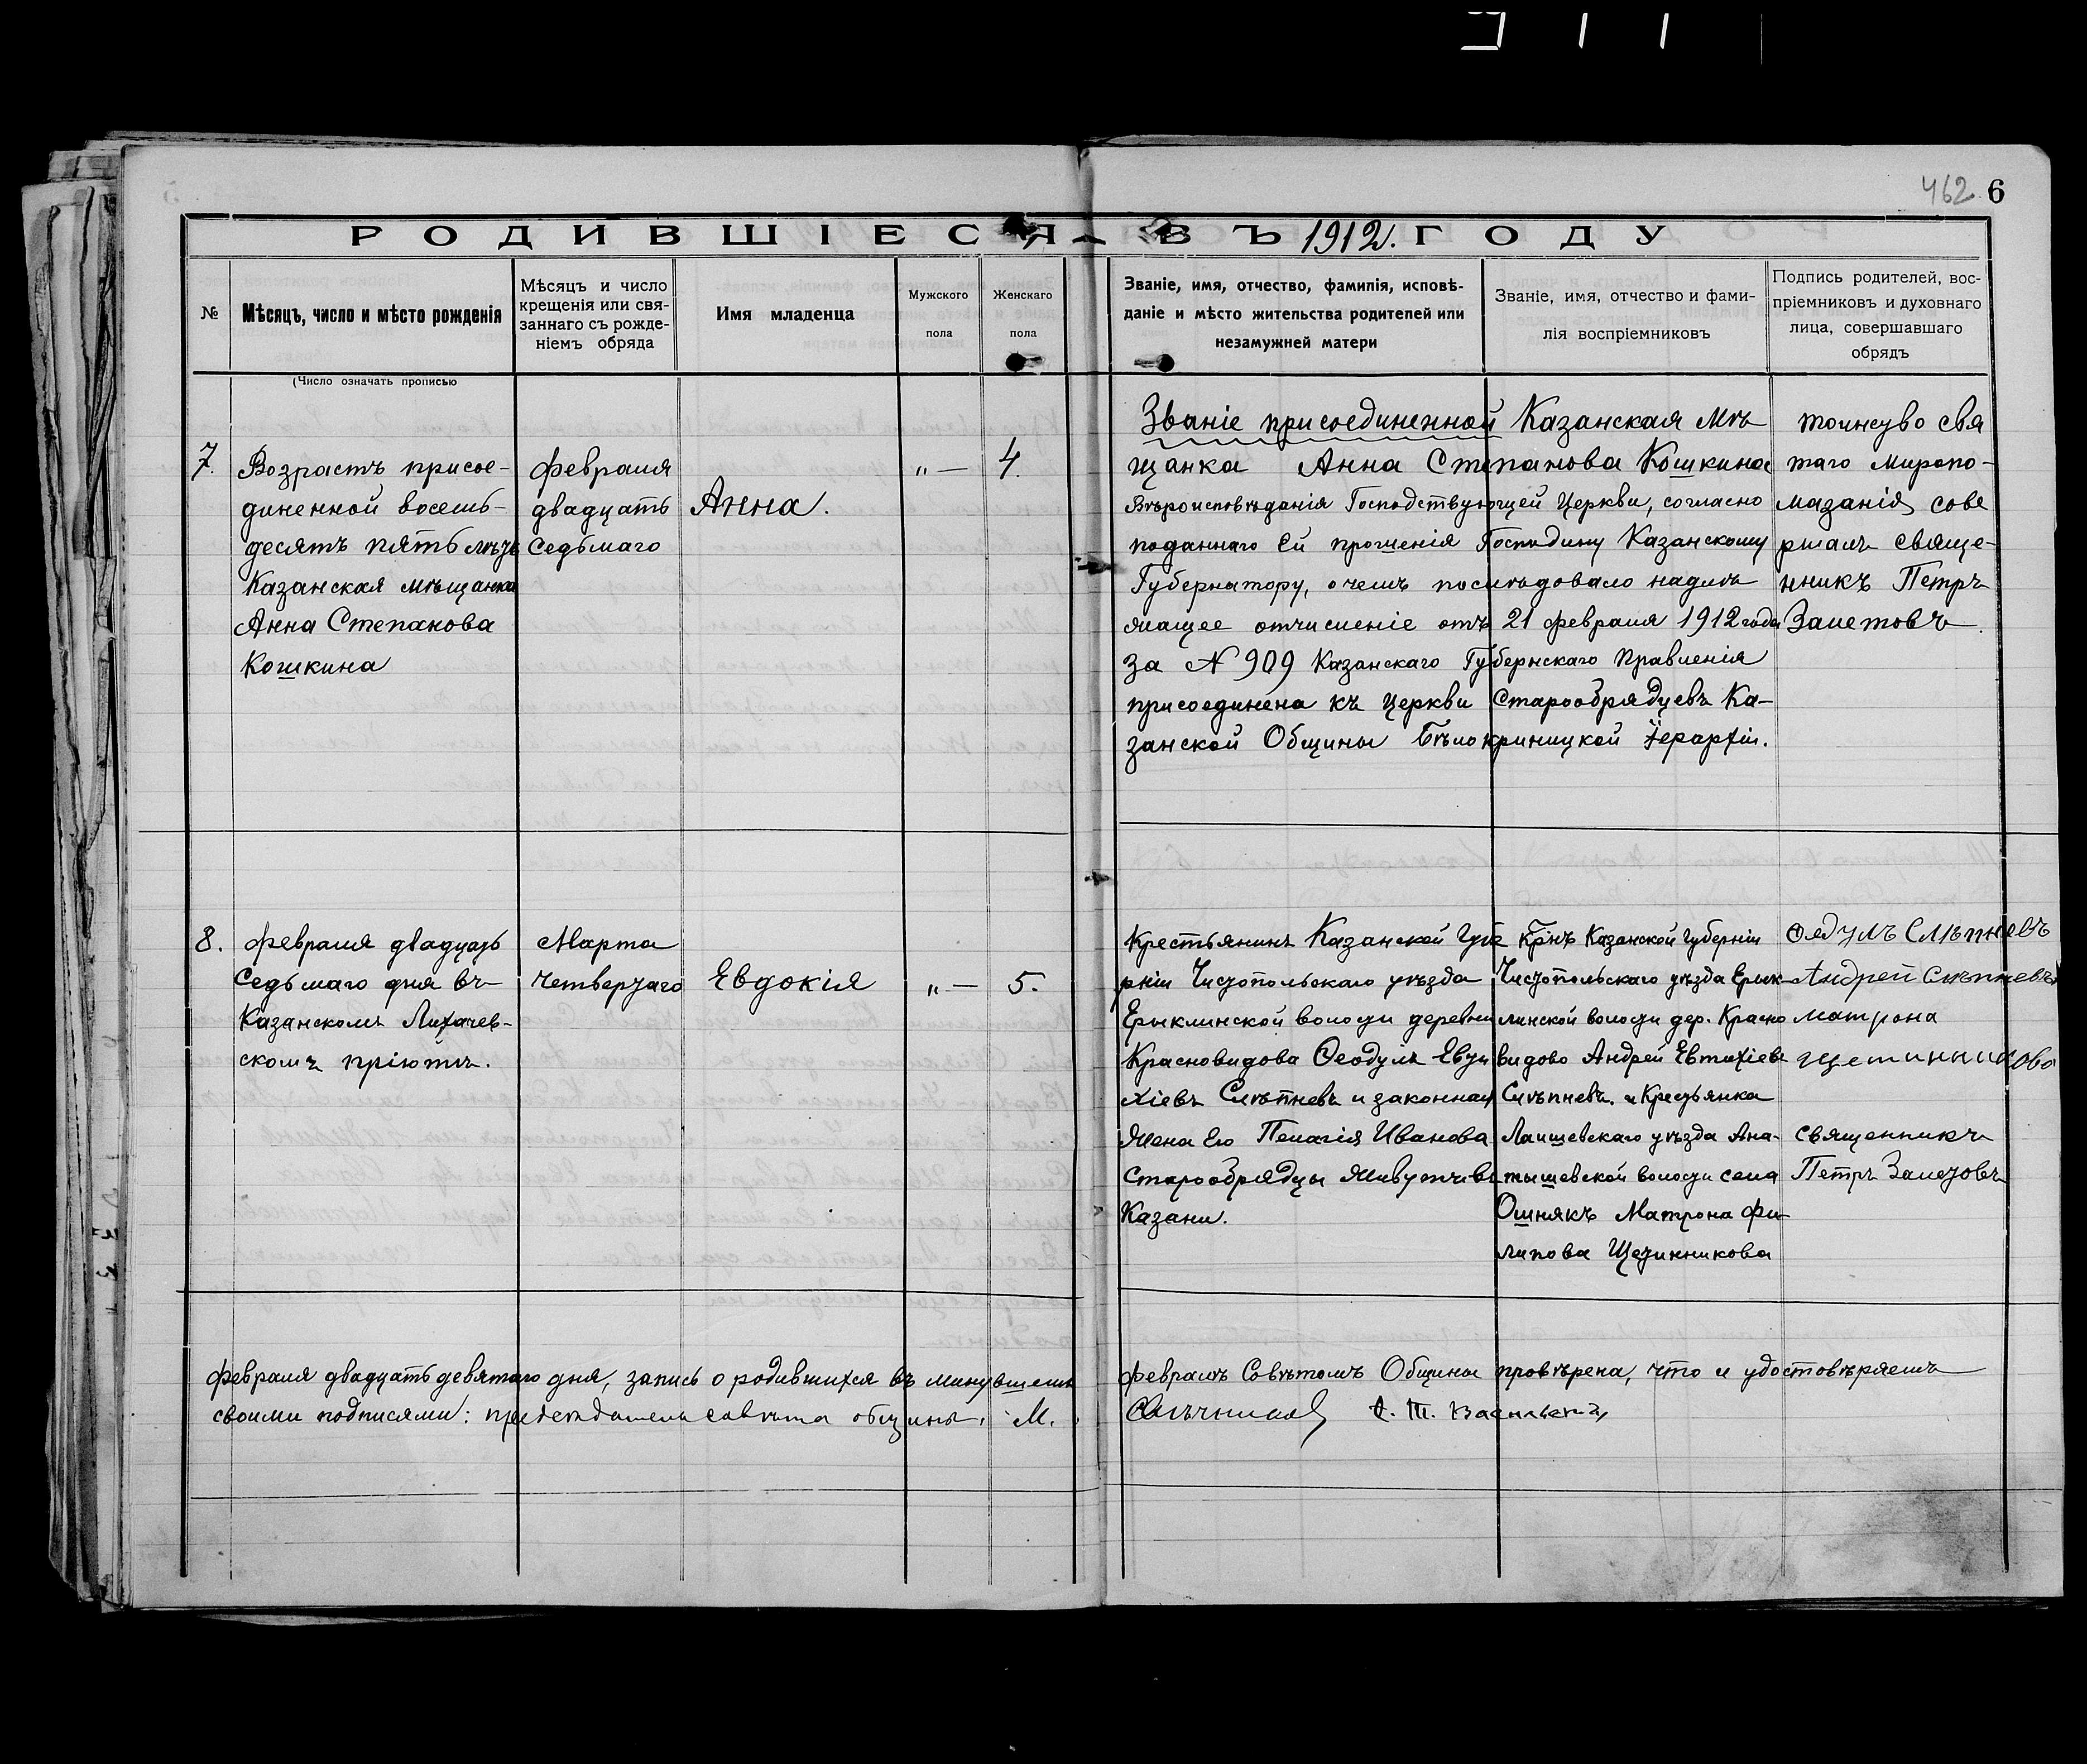 462. 6
РОДИВШІЕСЯ ВЪ 1912 г. ГОДУ
№
Мѣсяцъ, число и мѣсто рожденія
(Число означать прописью
Мѣсяцъ и число
крещенія или свя-
заннаго съ рожде-
ніемъ обряда
Имя младенца
Мужского
пола
Женскаго
пола
Званіе, имя, отчество, фамилія, исповѣ-
даніе и мѣсто жительства родителей или
незамужней матери
Званіе, имя, отчество и фами-
лія воспріемниковъ
Подпись родителей, вос-
пріемниковъ и духовнаго
лица, совершавшаго
обрядъ
7.
Возрастъ присое-
диненной восемь-
десятъ пять лѣтъ
Казанская мѣщанка
Анна Степанова
Кошкина
февраля
двадцать
седьмаго
Анна.
„ —
4.
Званіе присоединенной Казанская мѣ
щанка Анна Степанова Кошкина
Вѣроисповѣданія Господствующей Церкви, согласно
поданнаго Ей прошенія Господину Казанскому
Губернатору, о чемъ послѣдовало надле
жащее отчисленіе отъ 21 февраля 1912 года
за № 909 Казанскаго Губернскаго Правленія
присоединена къ церкви Старообрядцевъ Ка-
занской Общины Бѣлокриницкой Іерархіи.
таинсво свя
таго миропо-
мазанія сове
ршалъ свяще-
нникъ Петръ
Залетовъ.
8.
февраля двадцать
седьмаго дня въ
Казанскомъ Лихачев-
скомъ пріютѣ.
Марта
четвертаго
Евдокія
„ —
5.
Крестьянинъ Казанской Губе
рніи Чистопольскаго уѣзда
Ерыклинской волости деревни
Красновидова Ѳеодулъ Евти
хіевъ Слѣпневъ и законная
жена Его Пелагія Иванова
Старообрядцы живутъ въ
Казани.
Крнъ Казанской Губерніи
Чистопольскаго уѣзда Ерык-
линской волости дер. Красно
видово Андрей Евтихіевъ
Слѣпневъ. и Крестьянка
Лаишевскаго уѣзда Ана-
тышевской волости села
Ошнякъ Матрона Фи-
липова Щетинникова
Ѳядулъ Слѣпневъ
Андрей Слѣпневъ
Матрона
щетинникова
священникъ
Петръ Залетовъ
февраля двадцать девятаго дня, запись о родившихся въ минувшемъ февралѣ Совѣтомъ Общины провѣрена, что и удостовѣряемъ
своими подписями: председатель совѣта общины. М.